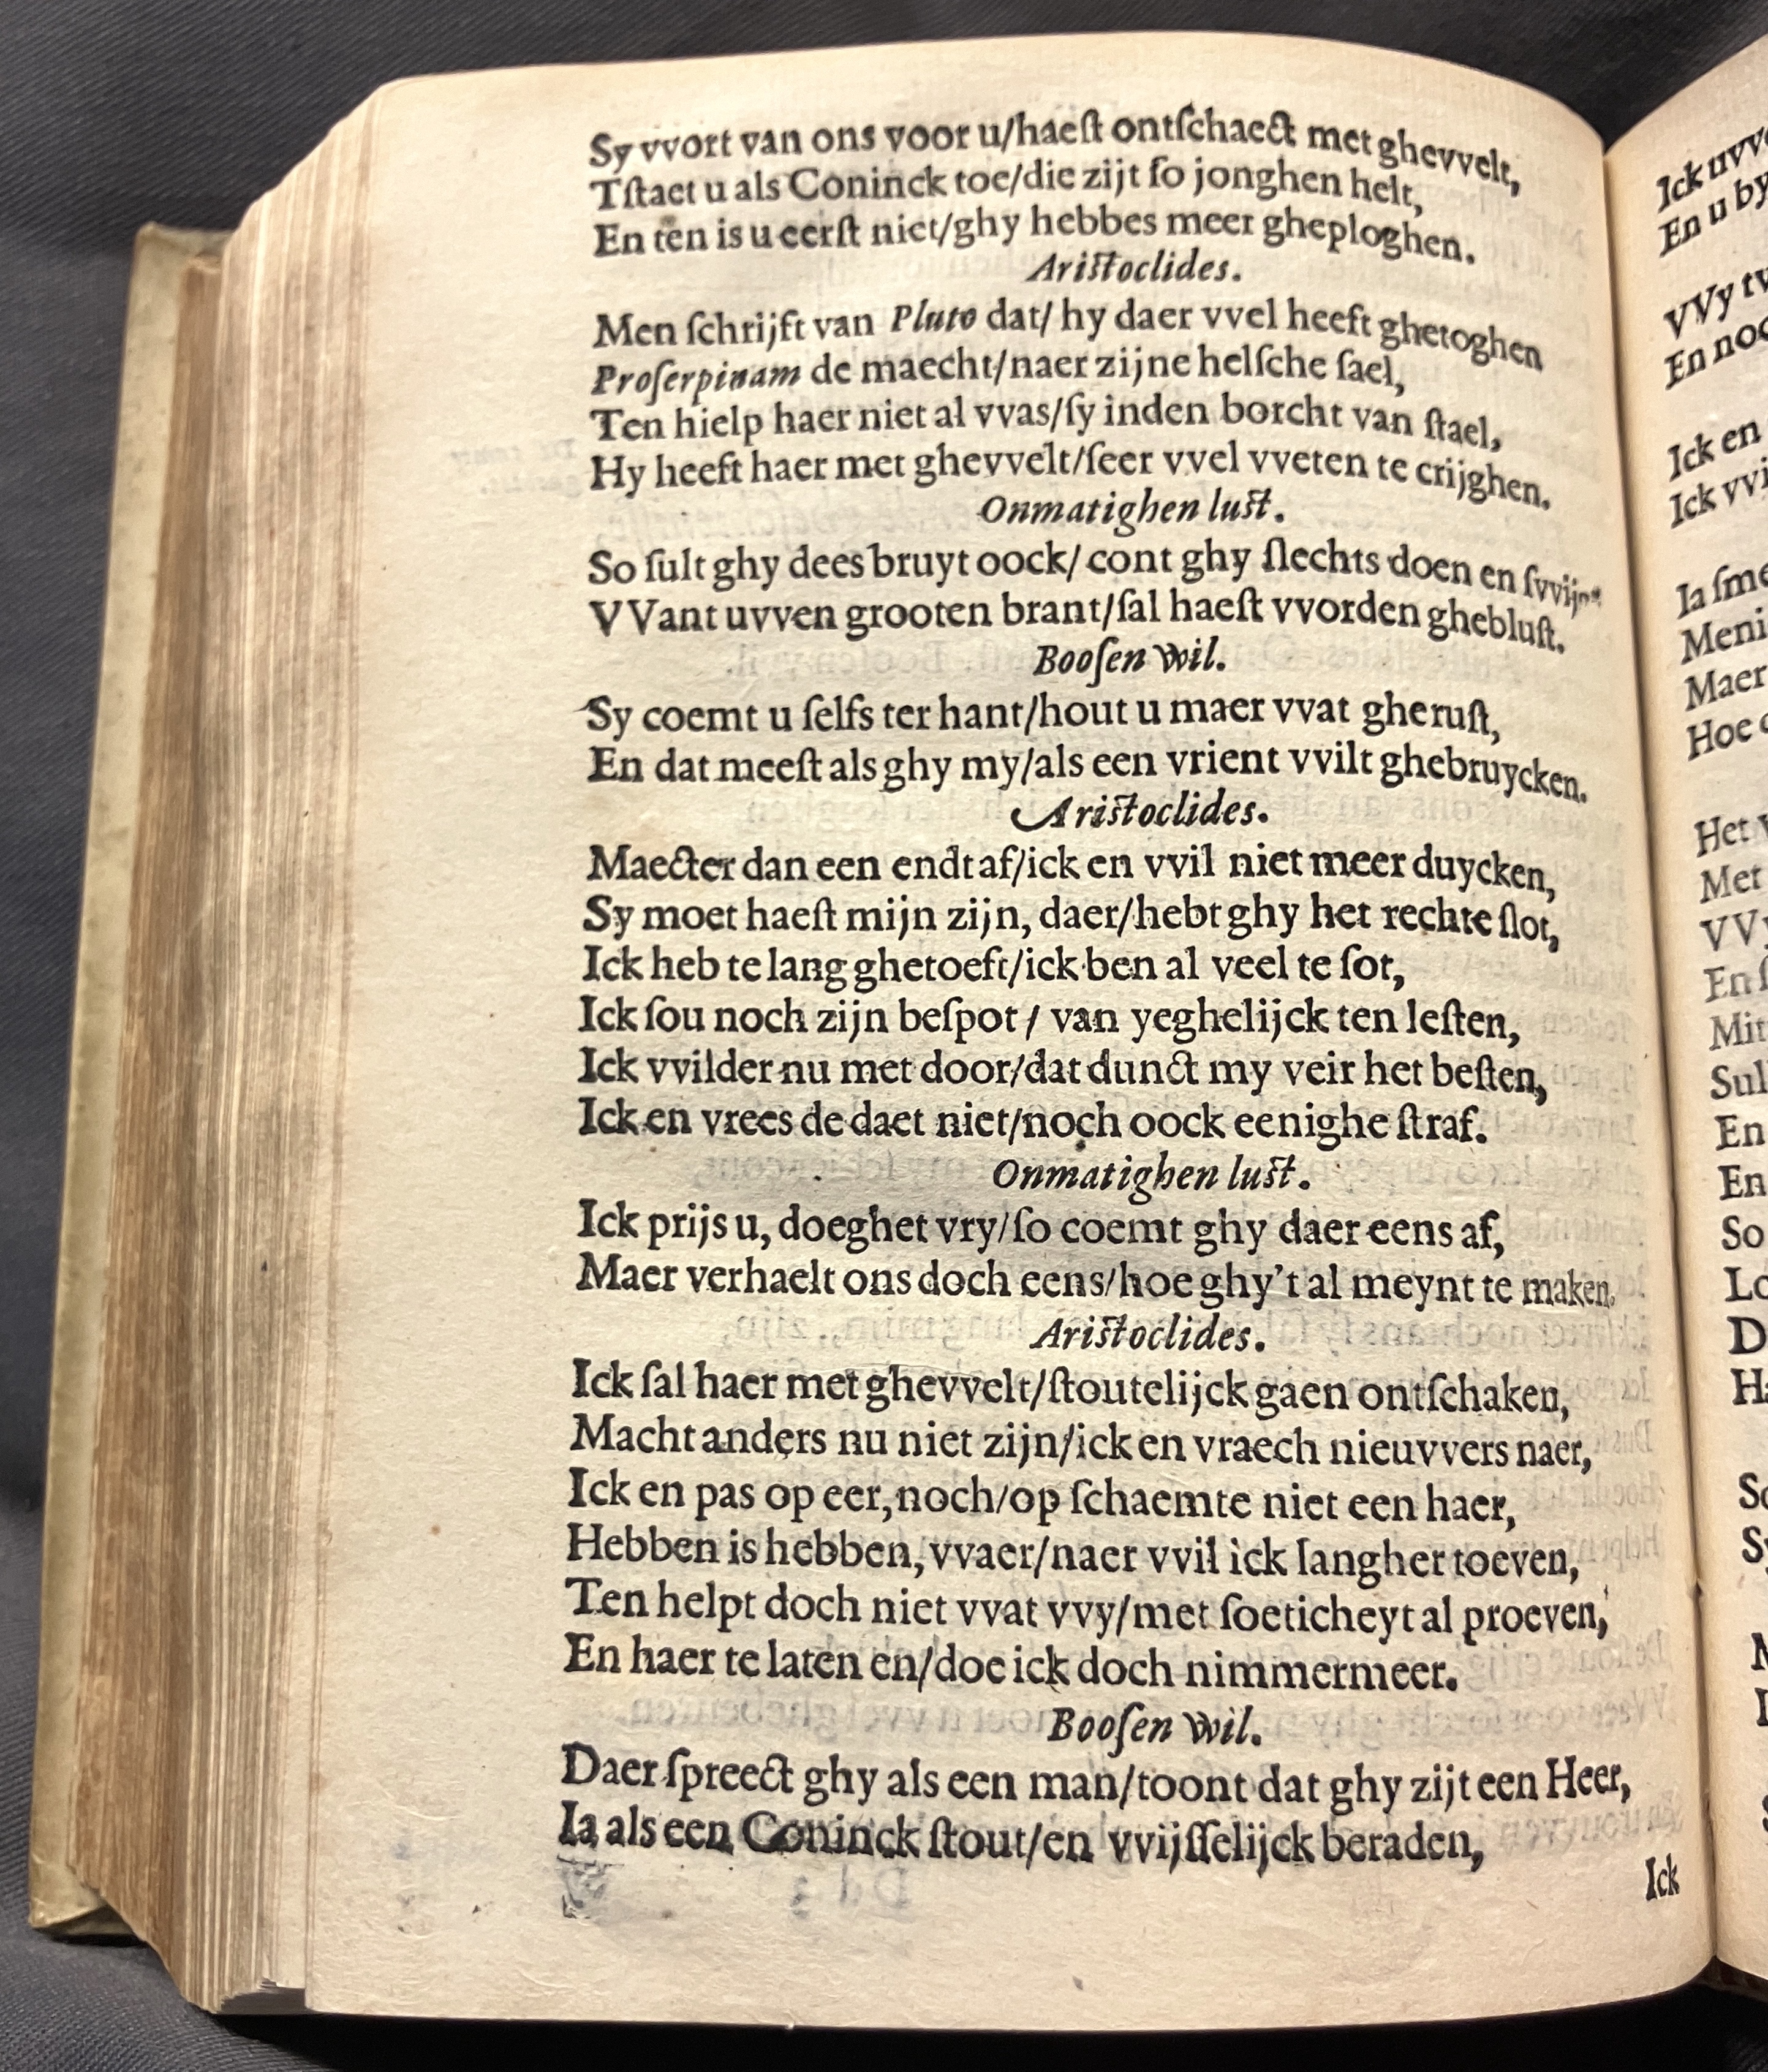 Sy vvort van ons voor u/haeſt ontſchaect met ghevvelt,
Tſtaet u als Coninck toe/die zijt ſo jonghen helt,
En ten is u eerſt niet/ghy hebbes meer gheploghen.
Ariſtoclides.
Men ſchrijft van Pluto dat/ hy daer vvel heeft ghetoghen
Proſerpinam de maecht/naer zijne helſche ſael,
Ten hielp haer niet al vvas/ſy inden borcht van ſtael,
Hy heeft haer met ghevvelt/ſeer vvel vveten te crijghen.
Onmatighen luſt.
So ſult ghy dees bruyt oock/ cont ghy ſlechts doen en
VVant uvven grooten brant/ſal haeſt vvorden ghebluſt.
Booſen wil.
Sy coemt u ſelfs ter hant/hout u maer vvat gheruſt,
En dat meeſt als ghy my/als een vrient vvilt ghebruycken.
Ariſtoclides.
Maecter dan een endt af/ick en vvil niet meer duycken,
Sy moet haeſt mijn zijn, daer/hebt ghy het rechte ſlot,
Ick heb te lang ghetoeft/ick ben al veel te ſot,
Ick ſou noch zijn beſpot / van yeghelijck ten leſten,
Ick vvilder nu met door/dat dunct my veir het beſten,
Ick en vrees de daet niet/noch oock eenighe ſtraf.
Onmatighen luſt.
Ick prijs u, doeghet vry/ſo coemt ghy daer eens af,
Maer verhaelt ons doch eens/hoe ghy't al meynt te maken.
Ariſtoclides.
Ick ſal haer met ghevvelt/ſtoutelijck gaen ontſchaken,
Macht anders nu niet zijn/ick en vraech nieuvvers naer,
Ick en pas op eer, noch/op ſchaemte niet een haer,
Hebben is hebben, vvaer/naer vvil ick langher toeven,
Ten helpt doch niet vvat vvy/met ſoeticheyt al proeven,
En haer te laten en/doe ick doch nimmermeer.
Booſen wil.
Daer ſpreect ghy als een man/toont dat ghy zijt een Heer,
Ia als een Coninck ſtout/en vvijſſelijck beraden,
Ick